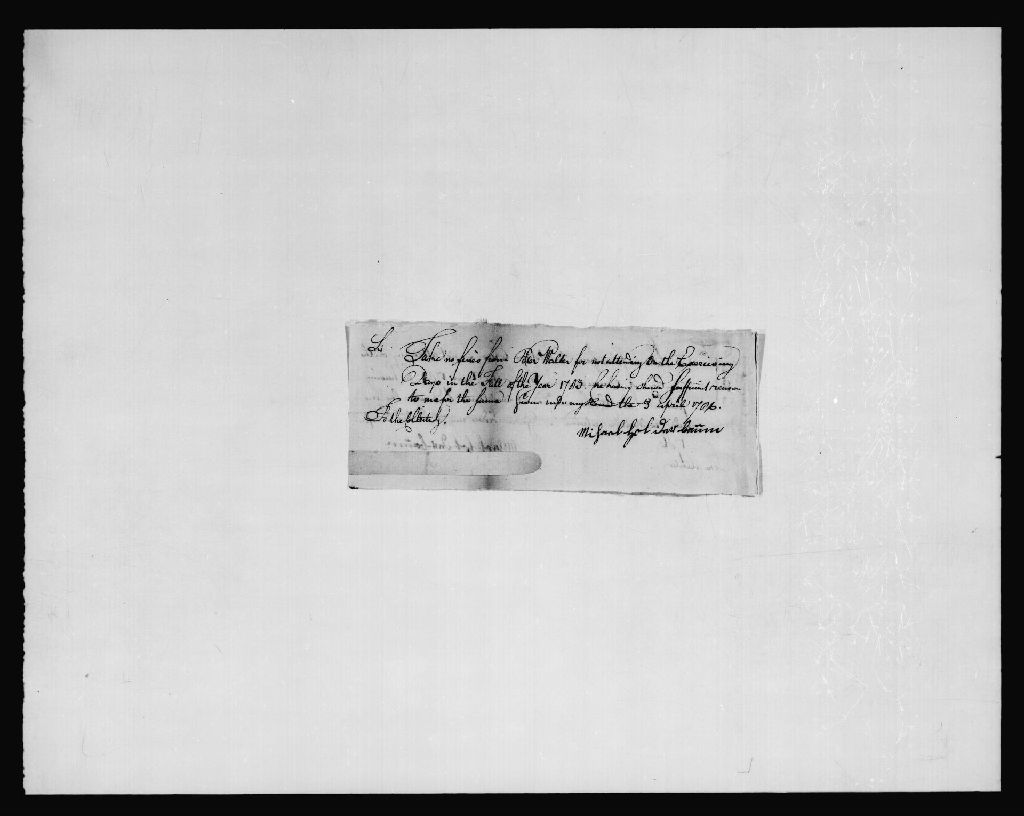 Sir Take no fines from Peter Walder for not attending on the Exercising
Days in the Fall of the Year 1783 he having made sufficient reason
to me for the same Given under my hand the 3d april 1786.
To the
Michael